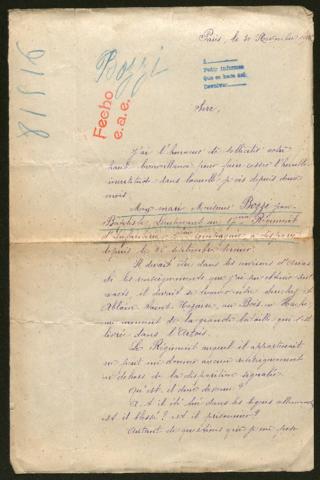 Paris, le 30 Novembre
91318
Bozzi
Fecho
e.a.e.
Pedir informes
Que se hace así.
Devolver
Sire,
J'ai l'honneur de solliciter votre
haute bienveillance pour faire cesser l'horrible
incertitude dans laquelle je vis depuis deux
mois.
Mon mari Monsieur Bozzi Jean
Baptiste, Lieutenant au Régiment
d'Infanterie Compagnie a disparu
depuis le septembre dernier.
Il devait être dans les environs d'Arras
de les renseignements que j'ai pu obtenir
il devait se trouver entre Souchez et
Ablain Saint-Nazaire, au Bois en Hache
au moment de la grande bataille qui s'est
livrée dans l'Artois.
Le Régiment auquel il appartenait
ne peut me donner aucun renseignement
en dehors de la disparition signalée.
Qu'est-il donc devenu?
A-t-il été tué dans les lignes allemandes
est-il blessé? est-il prisonnier?
Autant de questions que je me pose